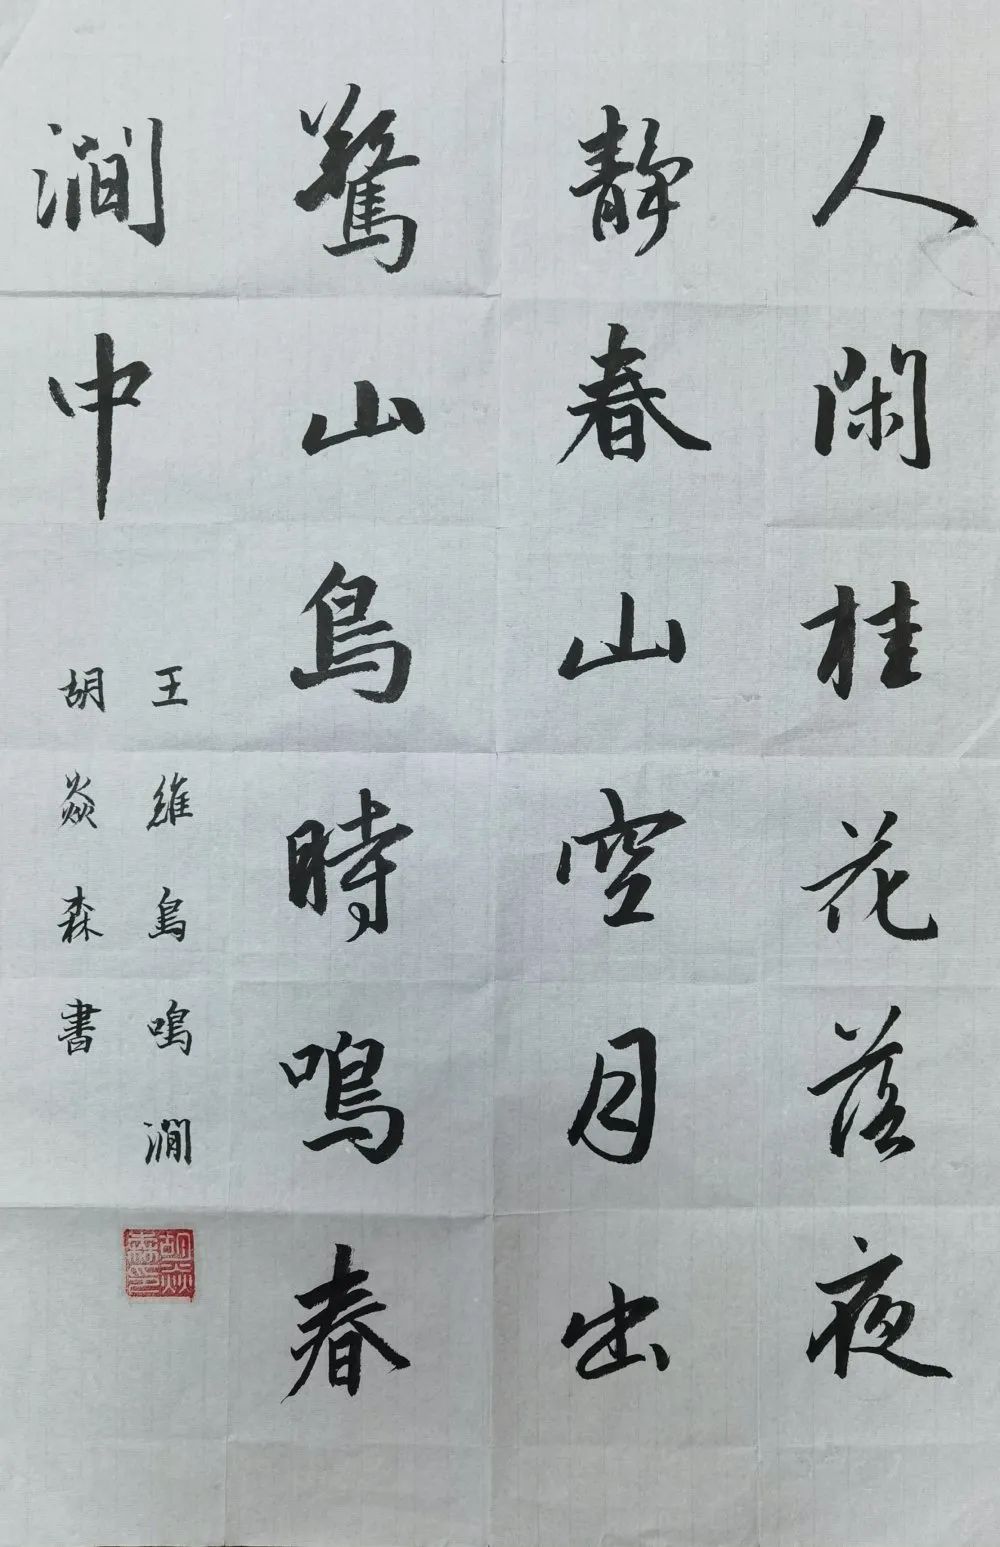 人閑桂花落夜
靜春山空月出
驚山鳥時鳴春
澗中
王維鳥鳴澗
胡焱森書
胡焱森印